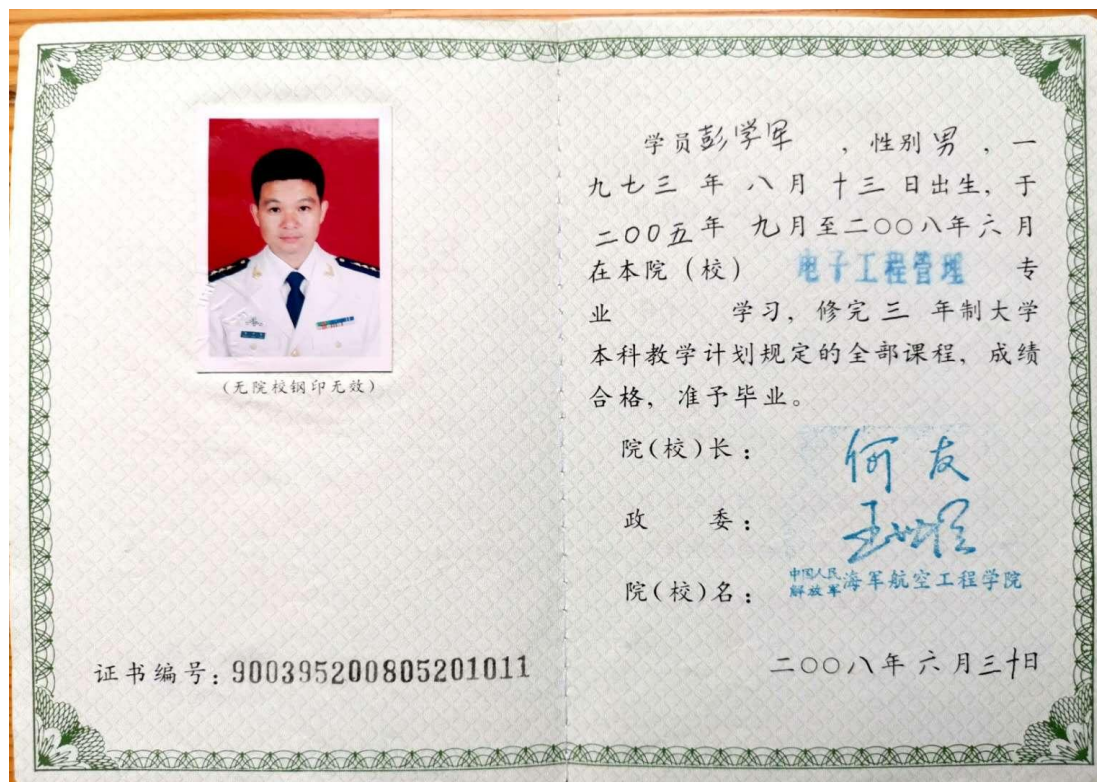 (无院校钢印无效)
证书编号:900395200805201011
学员彭学军 ,性别男 ,一
九七三 年 八月 十三 日出生,于
二〇〇五年 九月至二〇〇八年六月
在本院(校) 电子工程管理 专
业 学习,修完三 年制大学
本科教学计划规定的全部课程,成绩
合格,准予毕业。
院(校)长: 何友
政 委:
院(校)名: 中国人民解放军海军航空工程学院
二〇〇八年六月三十日